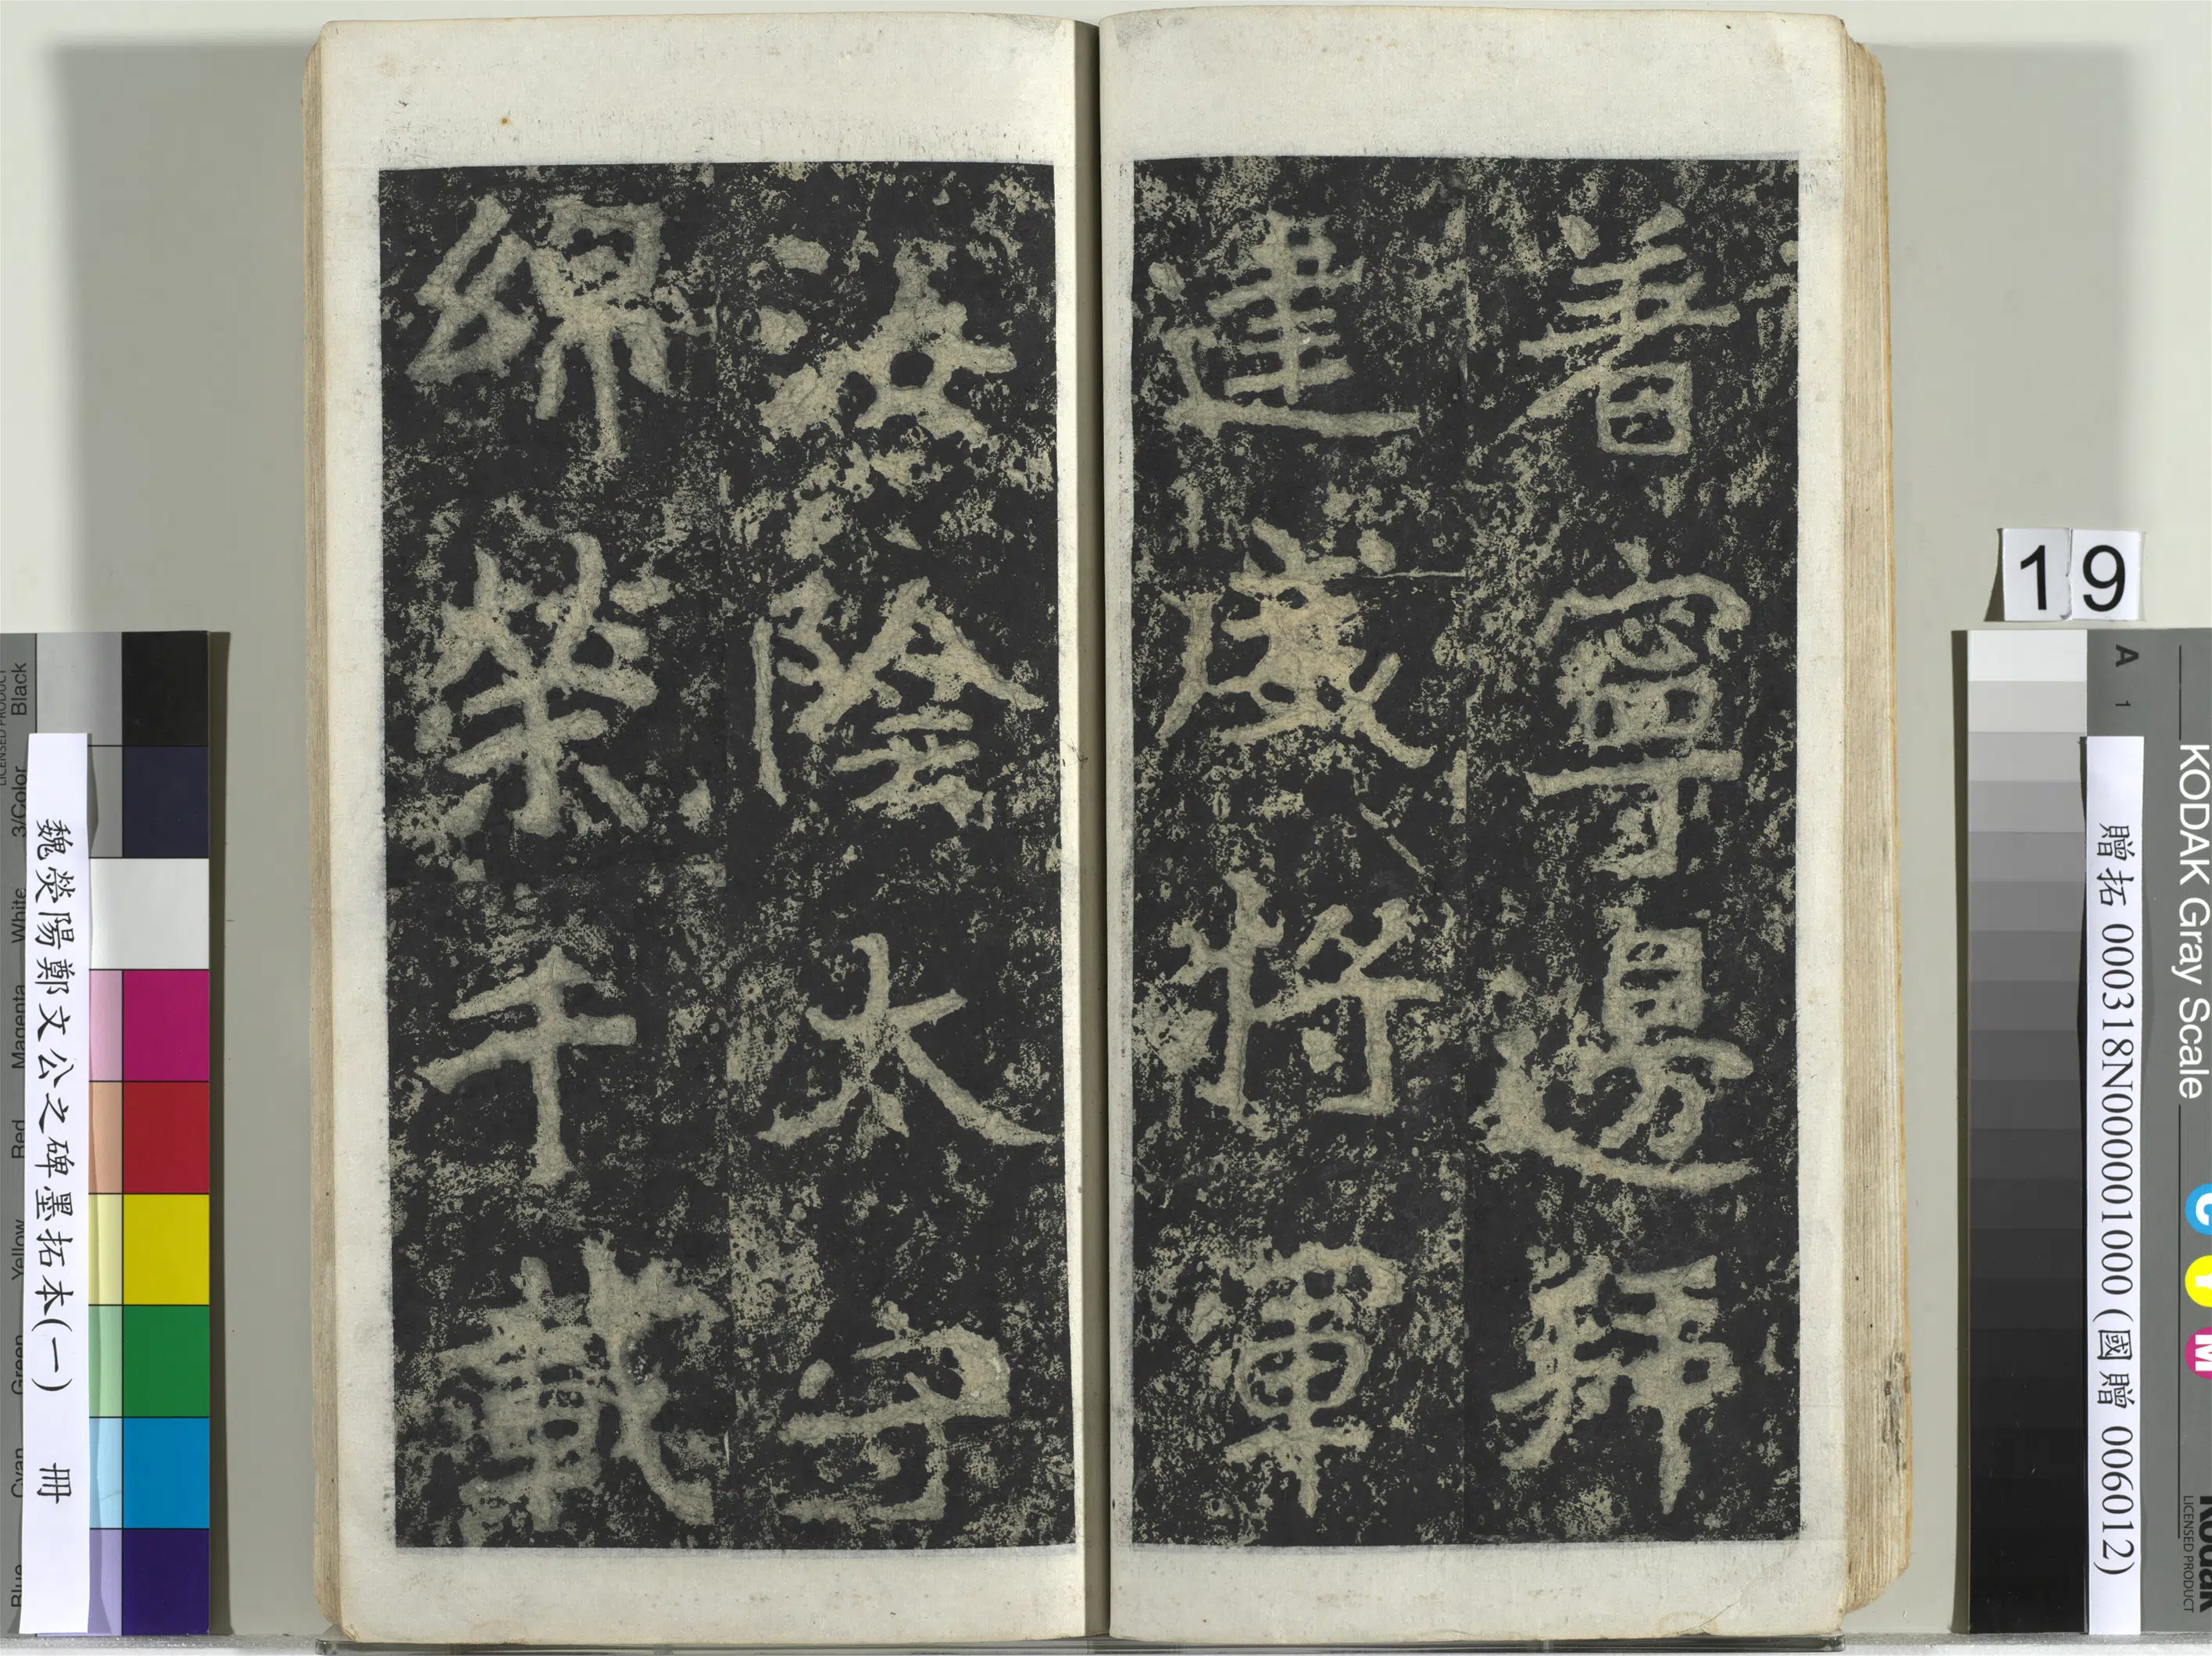 著寧邊拜
建威將軍
汝陰太守
綿榮千載
19
贈拓 000318N000001000 (國贈 006012)
KODAK Gray Scale
A 1
C Y M
Kodak
LICENSED PRODUCT
魏滎陽鄭文公之碑墨拓本(一) 冊
Blue Cyan Green Yellow Red Magenta White 3/Color Black
LICENSED PRODUCT